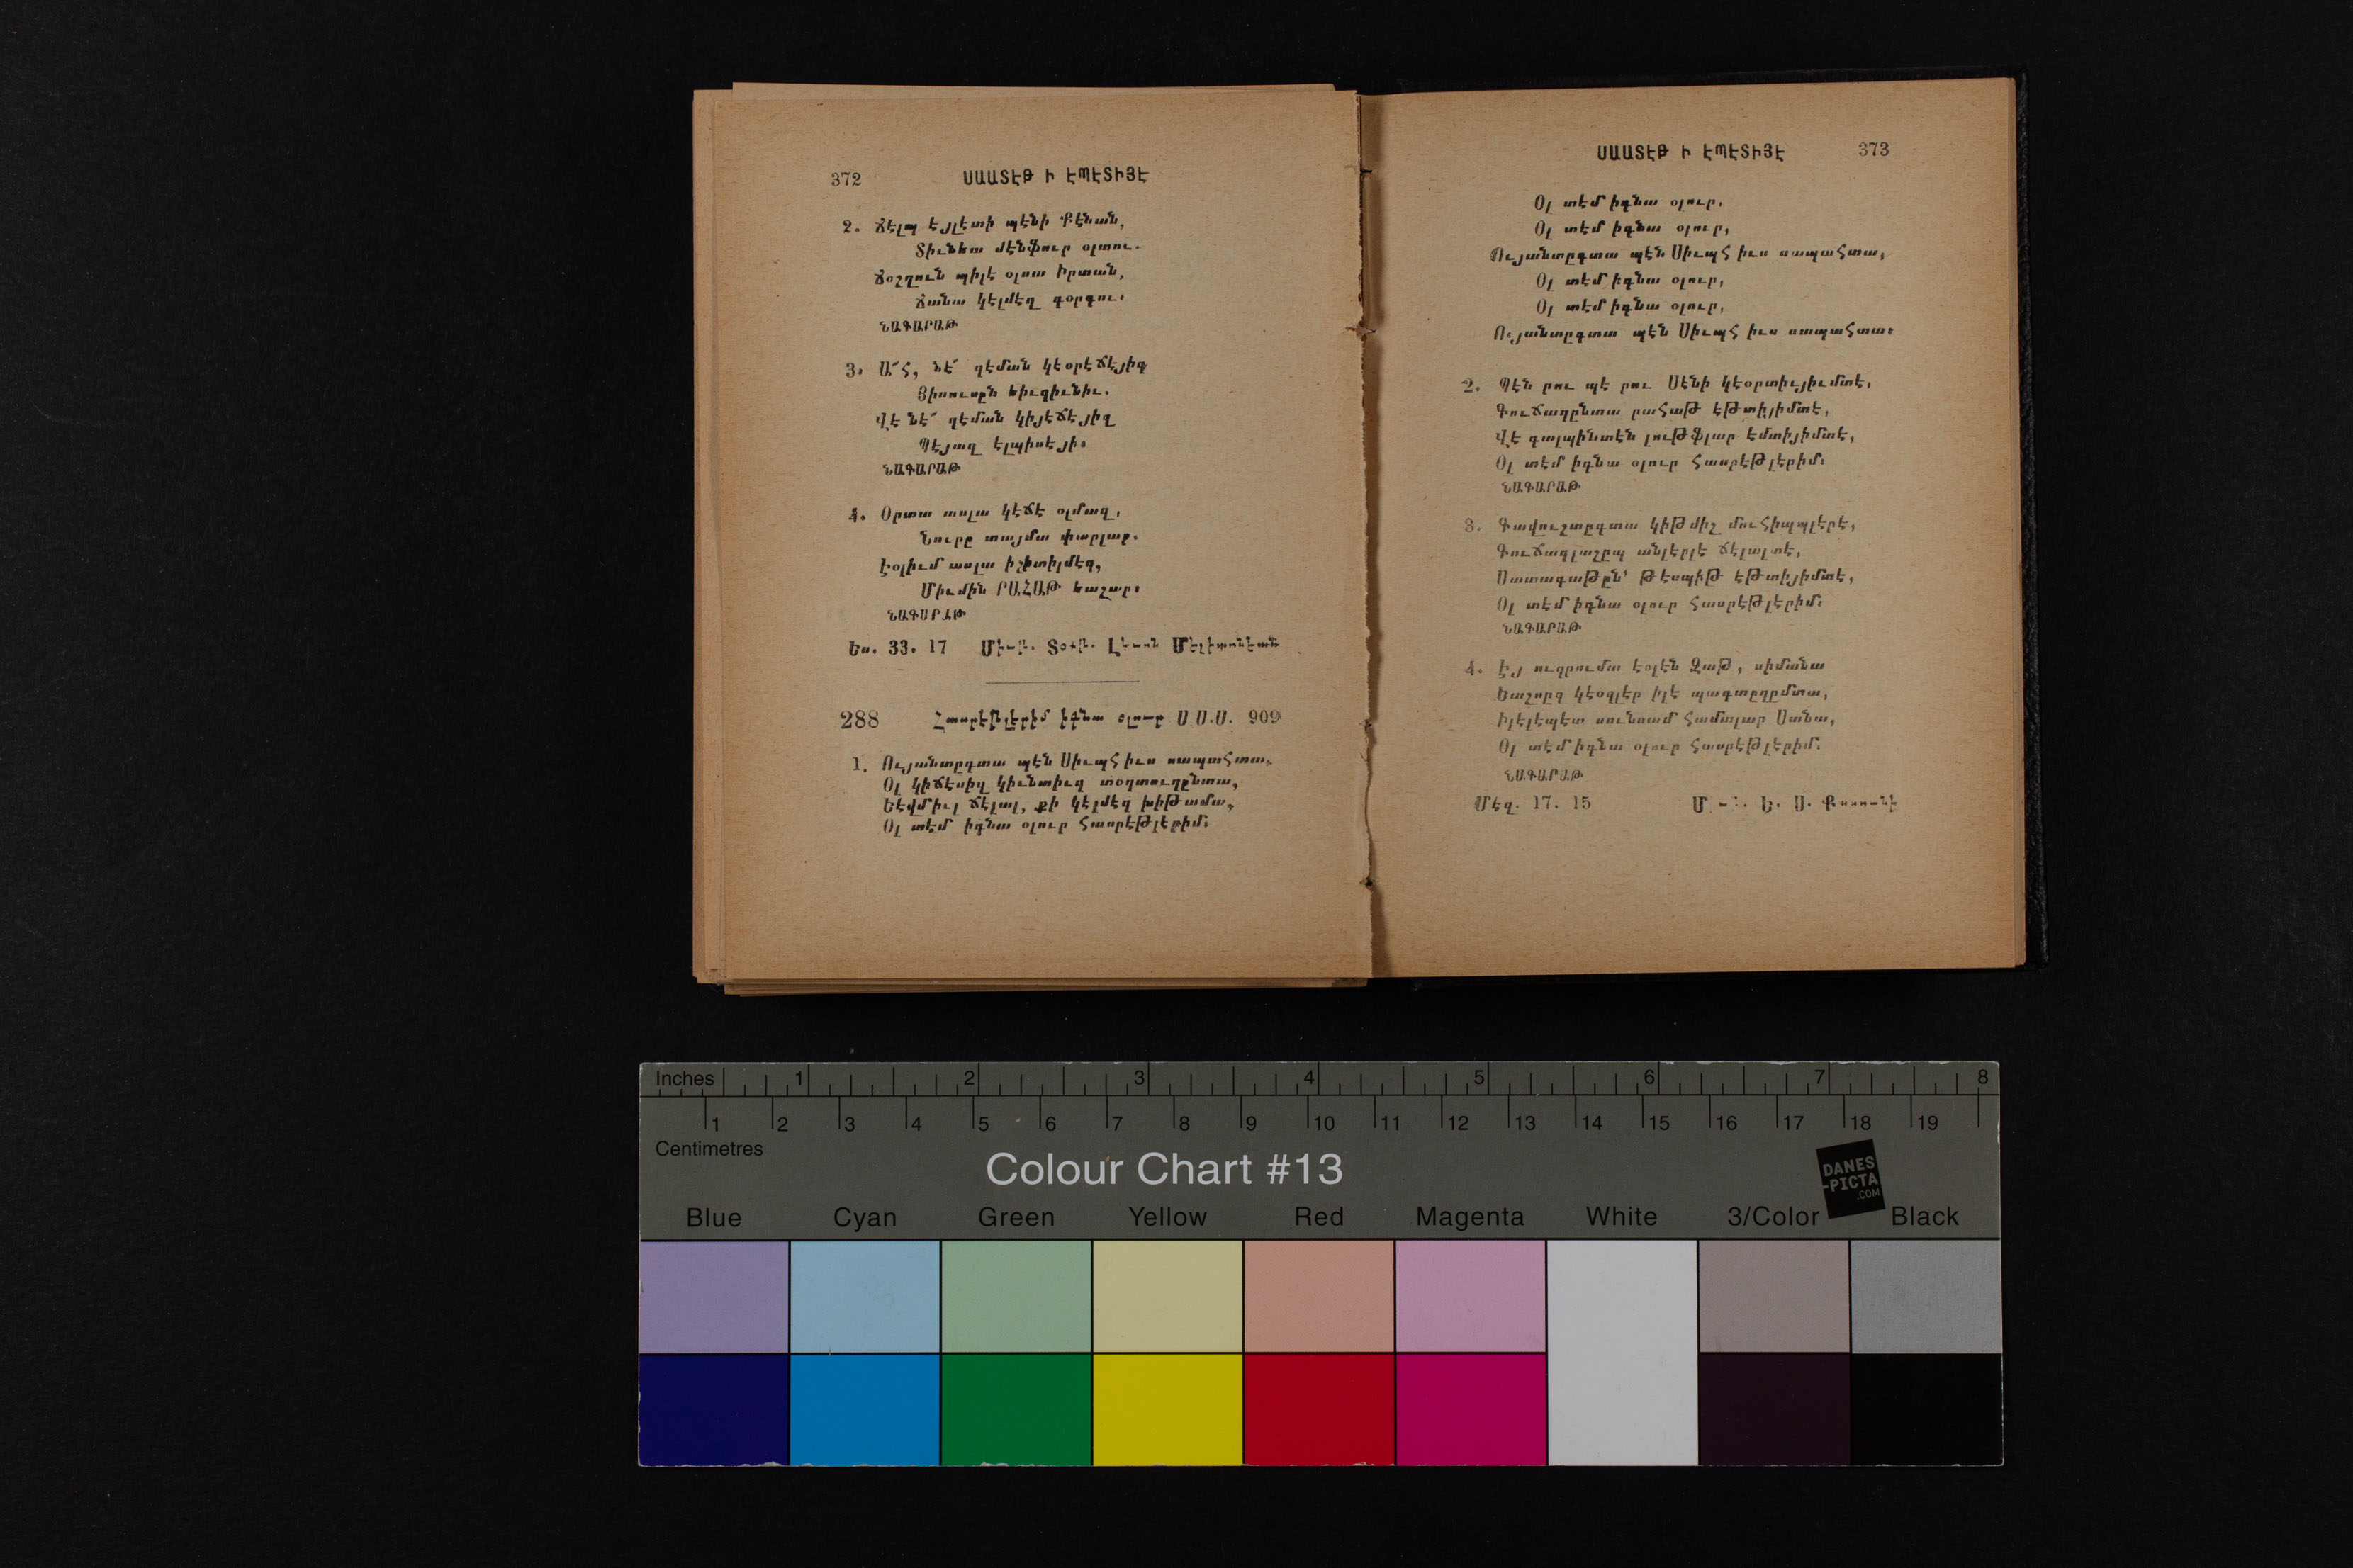 372 ՍԱԱՏԷԹ Ի ԷՊԷՏԻՅԷ
2. Ճէլպ էյլէտի պէնի Քէնան,
Տիւնեա մէնֆուր օլտու.
Ճօշղուն պիլէ օլսա Իրտան,
Ճանա կէլմէզ գօրգու։
ՆԱԳԱՐԱԹ
3. Ա՜հ, նէ՜ զէման կէօրէճէյիզ
Յիսուսըն եիւզիւնիւ.
Վէ նէ՜ զէման կիյէճէյիզ
Պէյազ էլպիսէյի։
ՆԱԳԱՐԱԹ
4. Օրտա ասլա կէճէ օլմազ,
Նուրը տայմա փարլար.
Էօլիւմ ասլա իշիտիլմէզ,
Միւմին ՐԱՀԱԹ եաշար։
ՆԱԳԱՐԱԹ
Ես. 33. 17
288 Հասրէթլէրիմ իգնա օլուր Ս.Ս.Ս. 909
1. Ույանտըգտա պէն Սիւպհ իւս սապահտա,
Օլ կիճէսիզ կիւնտիւզ տօղտուղընտա,
Եէվմիւլ ճէլալ, քի կէլմէզ խիթամա,
Օլ տէմ իգնա օլուր հասրէթլէրիմ։
ՍԱԱՏԷԹ Ի ԷՊԷՏԻՅԷ 373
Օլ տէմ իգնա օլուր,
Օլ տէմ իգնա օլուր,
Ույանտըգտա պէն Սիւպհ իւս սապահտա,
Օլ տէմ իգնա օլուր,
Օլ տէմ իգնա օլուր,
Ույանտըգտա պէն Սիւպհ իւս սապահտա։
2. Պէն րու պէ րու Սէնի կէօրտիւյիւմտէ,
Գուճաղընտա րահաթ էթտիյիմտէ,
Վէ գալպինտէն լութֆլար էմտիյիմտէ,
Օլ տէմ իգնա օլուր հասրէթլէրիմ։
ՆԱԳԱՐԱԹ
3. Գավուշտըգտա կիթմիշ մուհիպպլէրէ,
Գուճագլաշըպ անլէրլէ ճէլալտէ,
Սատագաթըն՚ թէսպիթ էթտիյիմտէ,
Օլ տէմ իգնա օլուր հասրէթլէրիմ։
ՆԱԳԱՐԱԹ
4. Էյ ուղրումա էօլէն Զաթ, սիմանա
Եաշսըզ կէօզլէր իլէ պագտըղըմտա,
Իլէլէպէտ սունսամ համտլար Սանա,
Օլ տէմ իգնա օլուր հասրէթլէրիմ։
ՆԱԳԱՐԱԹ
Մէզ. 17. 15
Inches 1 2 3 4 5 6 7 8
1 2 3 4 5 6 7 8 9 10 11 12 13 14 15 16 17 18 19
Centimetres
Colour Chart #13
DANES
-PICTA
.COM
Blue Cyan Green Yellow Red Magenta White 3/Color Black